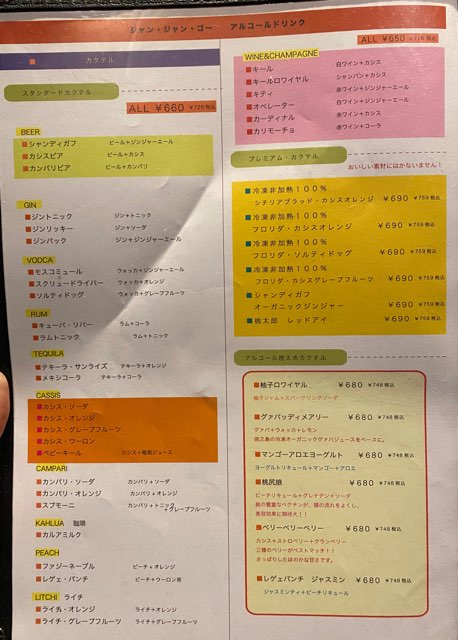 ジャン・ジャン・ゴー アルコールドリンク
カクテル
スタンダードカクテル
ALL ￥660 ￥726税込
BEER
シャンディガフ ビール+ジンジャーエール
カシスビア ビール+カシス
カンパリビア ビール+カンパリ
GIN
ジントニック ジン+トニック
ジンリッキー ジン+ソーダ
ジンバック ジン+ジンジャーエール
VODCA
モスコミュール ウォッカ+ジンジャーエール
スクリュードライバー ウォッカ+オレンジ
ソルティドッグ ウォッカ+グレープフルーツ
RUM
キューバ・リバー ラム+コーラ
ラムトニック ラム+トニック
TEQUILA
テキーラ・サンライズ テキーラ+オレンジ
メキシコーラ テキーラ+コーラ
CASSIS
カシス・ソーダ
カシス・オレンジ
カシス・グレープフルーツ
カシス・ウーロン
ベビーキール カシス+葡萄ジュース
CAMPARI
カンパリ・ソーダ カンパリ+ソーダ
カンパリ・オレンジ カンパリ+オレンジ
スプモーニ カンパリ+トニック+グレープフルーツ
KAHLUA 珈琲
カルアミルク
PEACH
ファジーネーブル ピーチ+オレンジ
レゲェ・パンチ ピーチ+ウーロン茶
LITCHI ライチ
ライチ・オレンジ ライチ+オレンジ
ライチ・グレープフルーツ ライチ+グレープフルーツ
ALL ￥650 ￥715税込
WINE&CHAMPAGNE
キール 白ワイン+カシス
キールロワイヤル シャンパン+カシス
キティ 赤ワイン+ジンジャーエール
オペレーター 白ワイン+ジンジャーエール
カーディナル 赤ワイン+カシス
カリモーチョ 赤ワイン+コーラ
プレミアム・カクテル
おいしい素材にはかないません！
冷凍非加熱１００％
シチリアブラッド・カシスオレンジ ￥690 ￥759税込
冷凍非加熱１００％
フロリダ・カシスオレンジ ￥690 ￥759税込
冷凍非加熱１００％
フロリダ・ソルティドッグ ￥690 ￥759税込
冷凍非加熱１００％
フロリダ・カシスグレープフルーツ ￥690 ￥759税込
シャンディガフ
オーガニックジンジャー ￥690 ￥759税込
桃太郎 レッドアイ ￥690 ￥759税込
アルコール控えめカクテル
柚子ロワイヤル ￥680 ￥748税込
柚子ジャム+スパークリングソーダ
グァバッディメアリー ￥680 ￥748税込
グァバ+ウォッカ+レモン
徳之島の冷凍オーガニックグァバジュースをベースに。
マンゴーアロエヨーグルト ￥680 ￥748税込
ヨーグルトリキュール+マンゴー+アロエ
桃尻娘 ￥680 ￥748税込
ピーチリキュール+グレナデン+ソーダ
桃の豊富なペクチンが、腸の流れをよくし、
美容効果に期待大！！
ベリーベリーベリー ￥680 ￥748税込
カシス+ストロベリー+クランベリー
三種のベリーがベストマッチ！！
さっぱりしたほのかな甘さです。
レゲェパンチ ジャスミン ￥680 ￥748税込
ジャスミンティ+ピーチリキュール